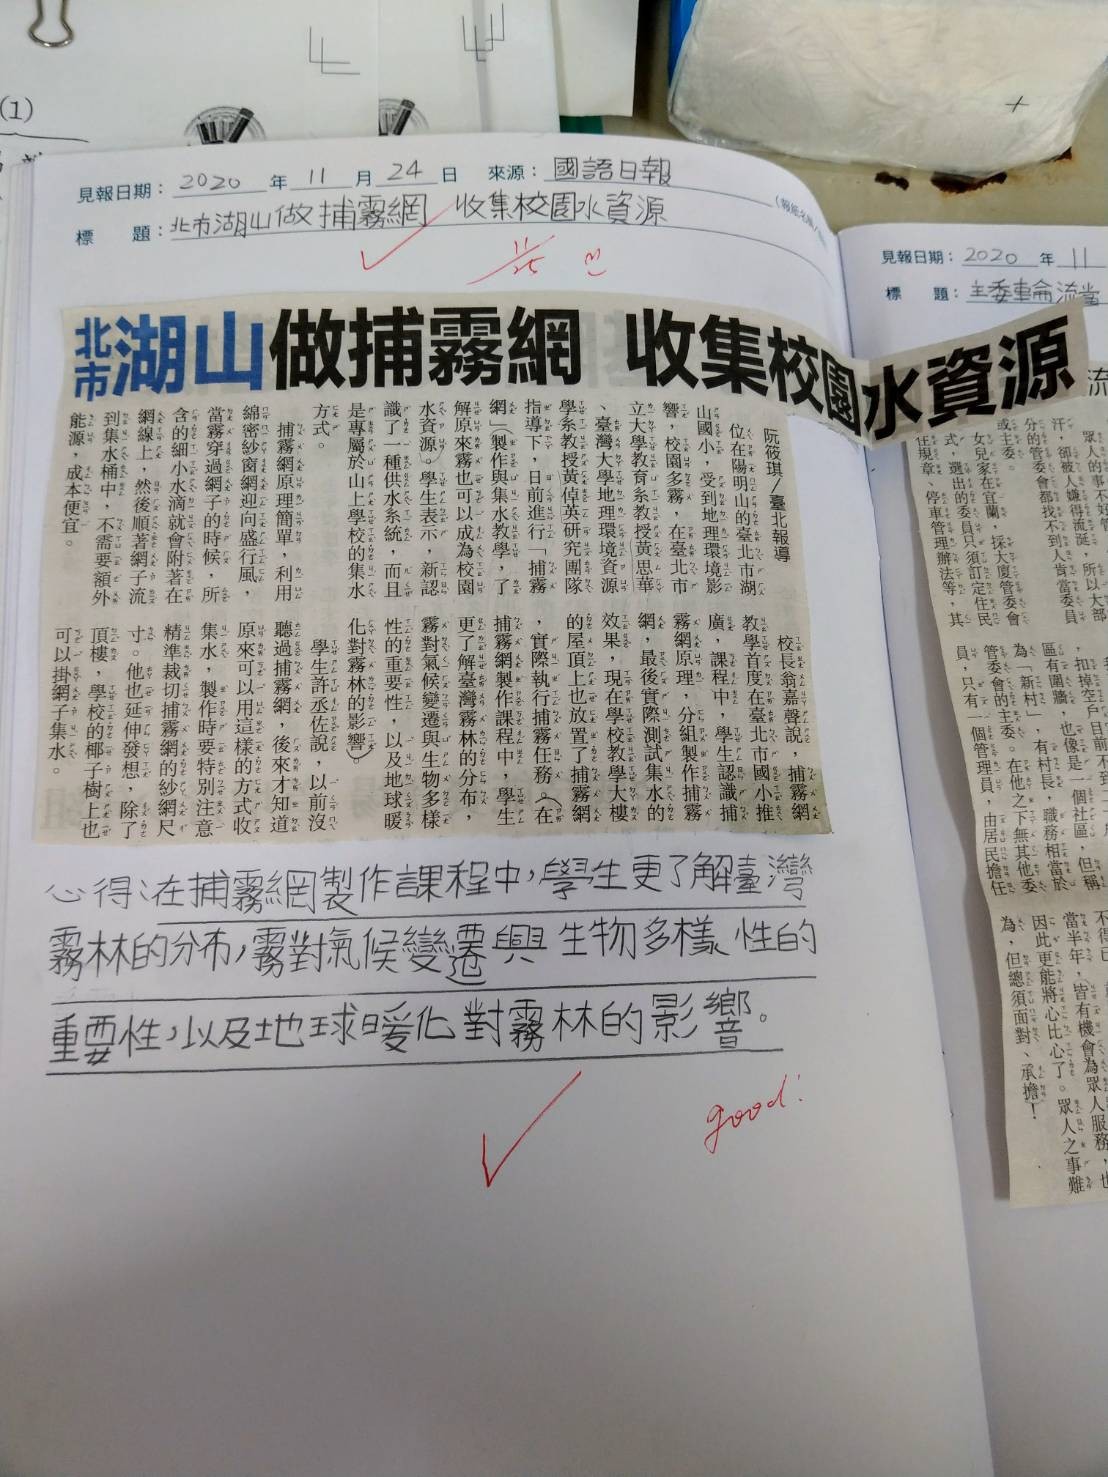 (1)
見報日期：2020年11月24日 來源：國語日報
標　題：北市湖山做捕霧網 收集校園水資源
11/25
北市湖山做捕霧網 收集校園水資源
阮筱琪／臺北報導
位在陽明山的臺北市湖
山國小，受到地理環境影
響，校園多霧，在臺北市
立大學教育系教授黃思華
、臺灣大學地理環境資源
學系教授黃倬英研究團隊
指導下，日前進行「捕霧
網」（製作與集水教學，了
解原來霧也可以成為校園
水資源。學生表示，新認
識了一種供水系統，而且
是專屬於山上學校的集水
方式。
捕霧網原理簡單，利用
綿密紗窗網迎向盛行風，
當霧穿過網子的時候，所
含的細小水滴就會附著在
網線上，然後順著網子流
到集水桶中，不需要額外
能源，成本便宜。
校長翁嘉聲說，捕霧網
教學首度在臺北市國小推
廣，課程中，學生認識捕
霧網原理，分組製作捕霧
網，最後實際測試集水的
效果，現在學校教學大樓
的屋頂上也放置了捕霧網
，實際執行捕霧任務。（在
捕霧網製作課程中，學生
更了解臺灣霧林的分布，
霧對氣候變遷與生物多樣
性的重要性，以及地球暖
化對霧林的影響）
學生許丞佐說，以前沒
聽過捕霧網，後來才知道
原來可以用這樣的方式收
集水，製作時要特別注意
精準裁切捕霧網的紗網尺
寸。他也延伸發想，除了
頂樓，學校的椰子樹上也
可以掛網子集水。
心得：在捕霧網製作課程中，學生更了解臺灣
霧林的分布，霧對氣候變遷與生物多樣性的
重要性，以及地球暖化對霧林的影響。
good!
見報日期：2020年11
標　題：主委車侖流當
流
眾人的事不好管
汗，卻被人嫌得流涎，所以大部
分的管委會都找不到人肯當委員
或主委。
女兒家在宜蘭，採大廈管委會
式，選出的委員只須訂定住民
任規章、停車管理辦法等，其
，扣掉空戶目前不到二
區有圍牆，也像是一個社區，但稱
為「新村」，有村長，職務相當於
管委會的主委。在他之下無其他委
員，只有一個管理員，由居民擔任
不得已
當半年，皆有機會為眾人服務，也
因此更能將心比心了。眾人之事難
為，但總須面對、承擔！